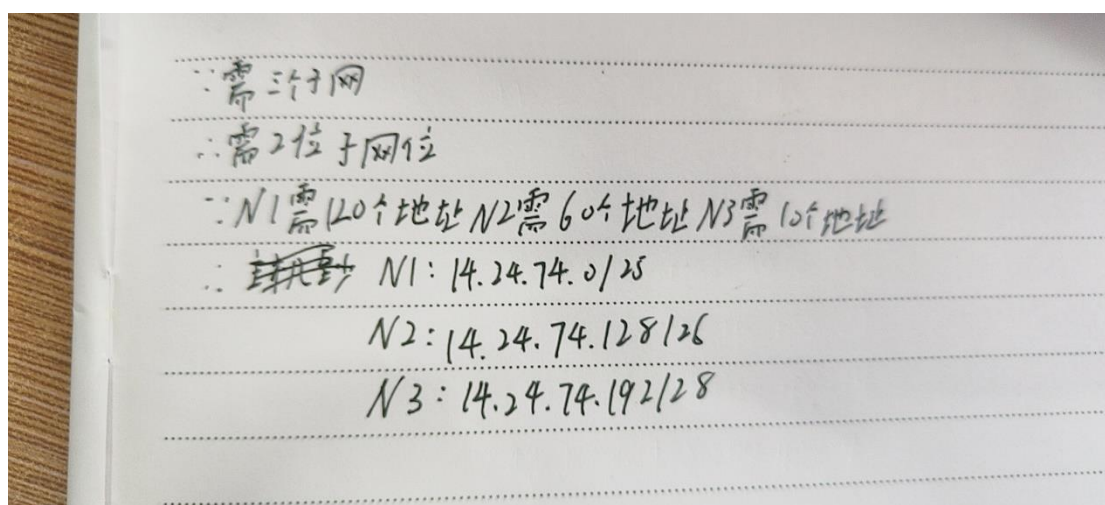 ∵需三个子网
∴需2位子网位
∵N1需120个地址N2需60个地址N3需10个地址
∴ N1:14.24.74.0/25
N2:14.24.74.128/26
N3:14.24.74.192/28